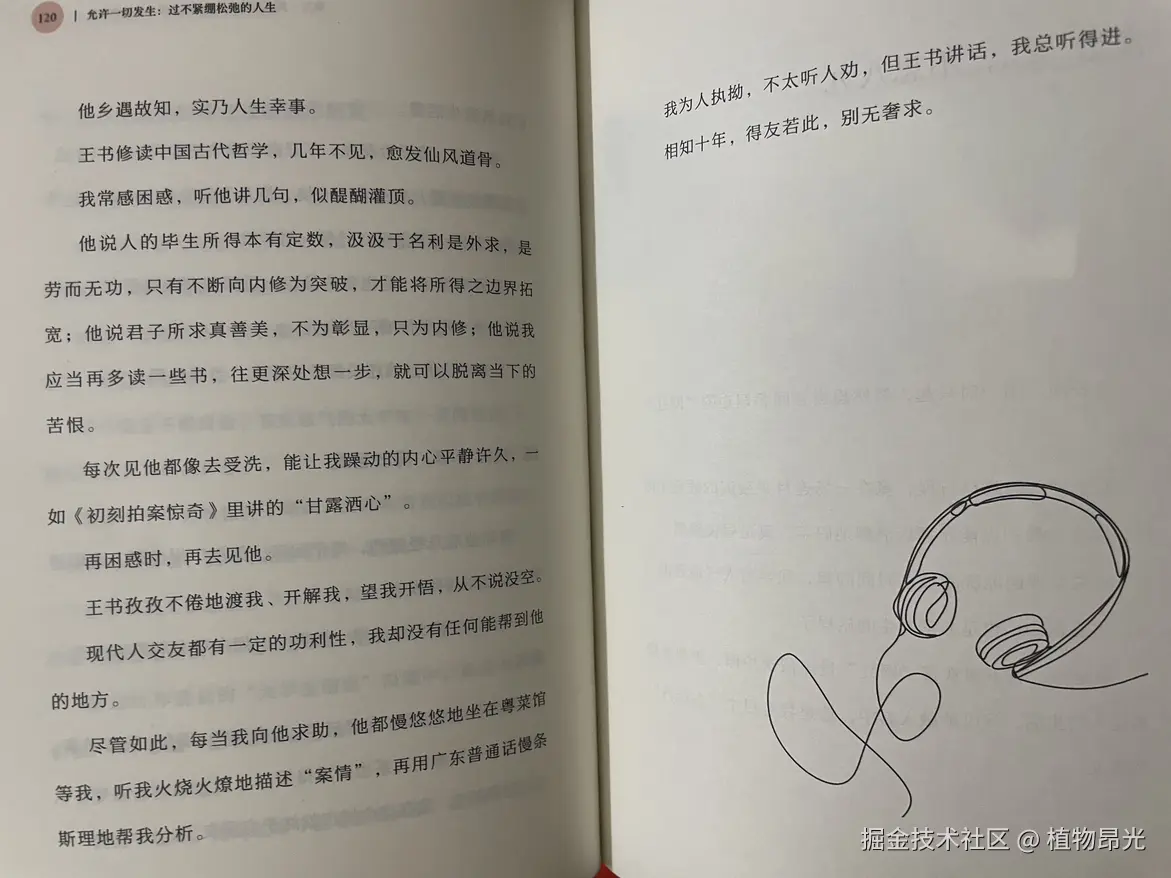 120 | 允许一切发生：过不紧绷松弛的人生
他乡遇故知，实乃人生幸事。
王书修读中国古代哲学，几年不见，愈发仙风道骨。
我常感困惑，听他讲几句，似醍醐灌顶。
他说人的毕生所得本有定数，汲汲于名利是外求，是
劳而无功，只有不断向内修为突破，才能将所得之边界拓
宽；他说君子所求真善美，不为彰显，只为内修；他说我
应当再多读一些书，往更深处想一步，就可以脱离当下的
苦恨。
每次见他都像去受洗，能让我躁动的内心平静许久，一
如《初刻拍案惊奇》里讲的“甘露洒心”。
再困惑时，再去见他。
王书孜孜不倦地渡我、开解我，望我开悟，从不说没空。
现代人交友都有一定的功利性，我却没有任何能帮到他
的地方。
尽管如此，每当我向他求助，他都慢悠悠地坐在粤菜馆
等我，听我火烧火燎地描述“案情”，再用广东普通话慢条
斯理地帮我分析。
我为人执拗，不太听人劝，但王书讲话，我总听得进。
相知十年，得友若此，别无奢求。
掘金技术社区 @ 植物昂光